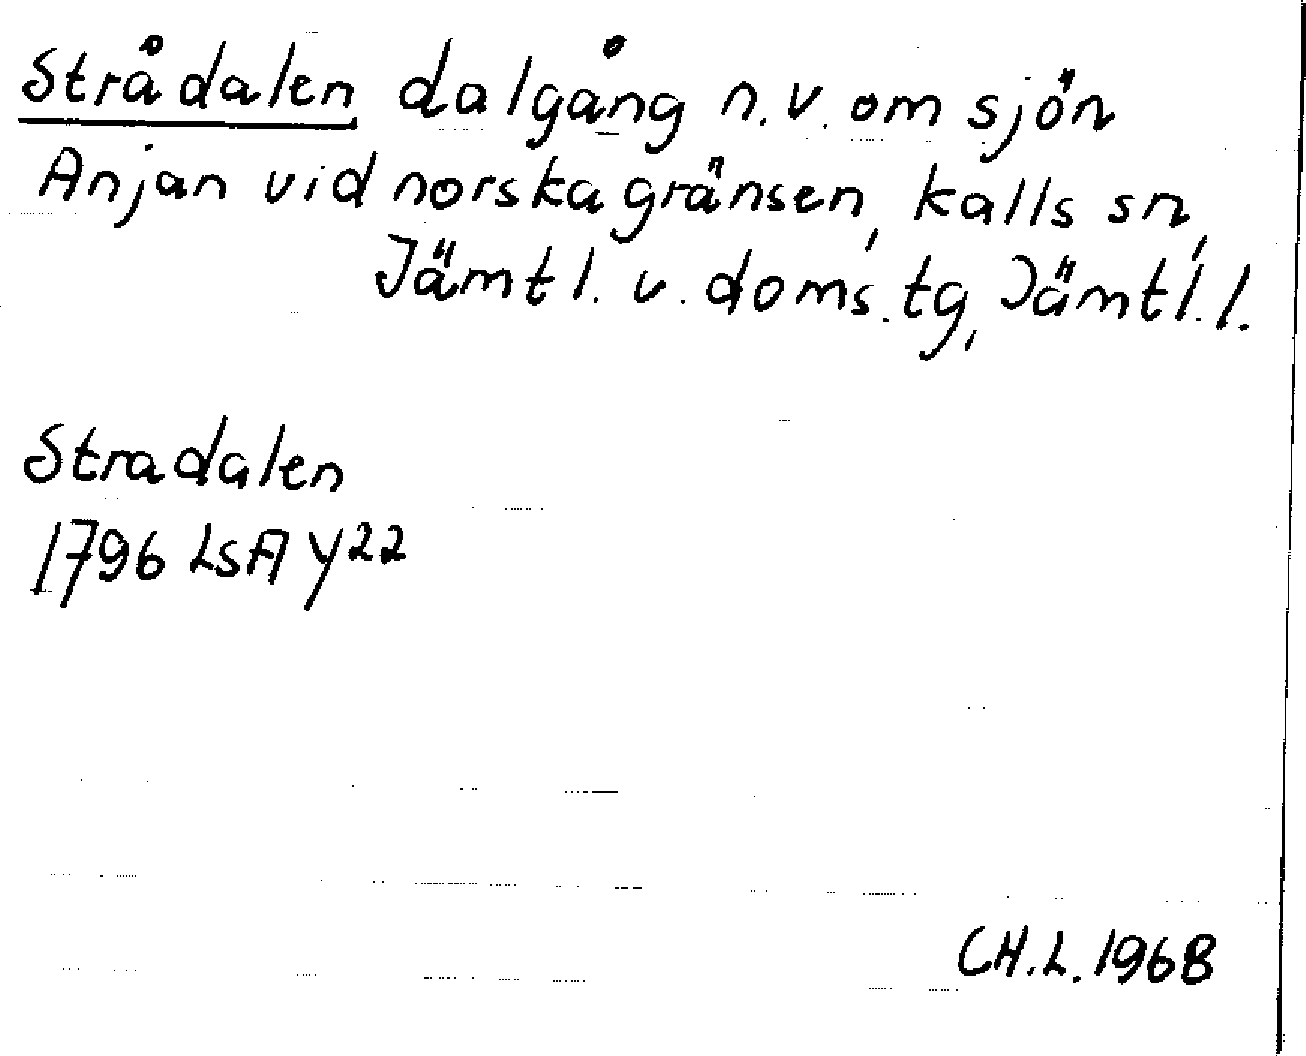 Strådalen dalgång n.v. om sjön
Anjan vid norska gränsen, kalls sn,
Jämtl. v. doms.tg, Jämtl.l.
Stradalen
1796 LSA Y22
CH.L. 1968